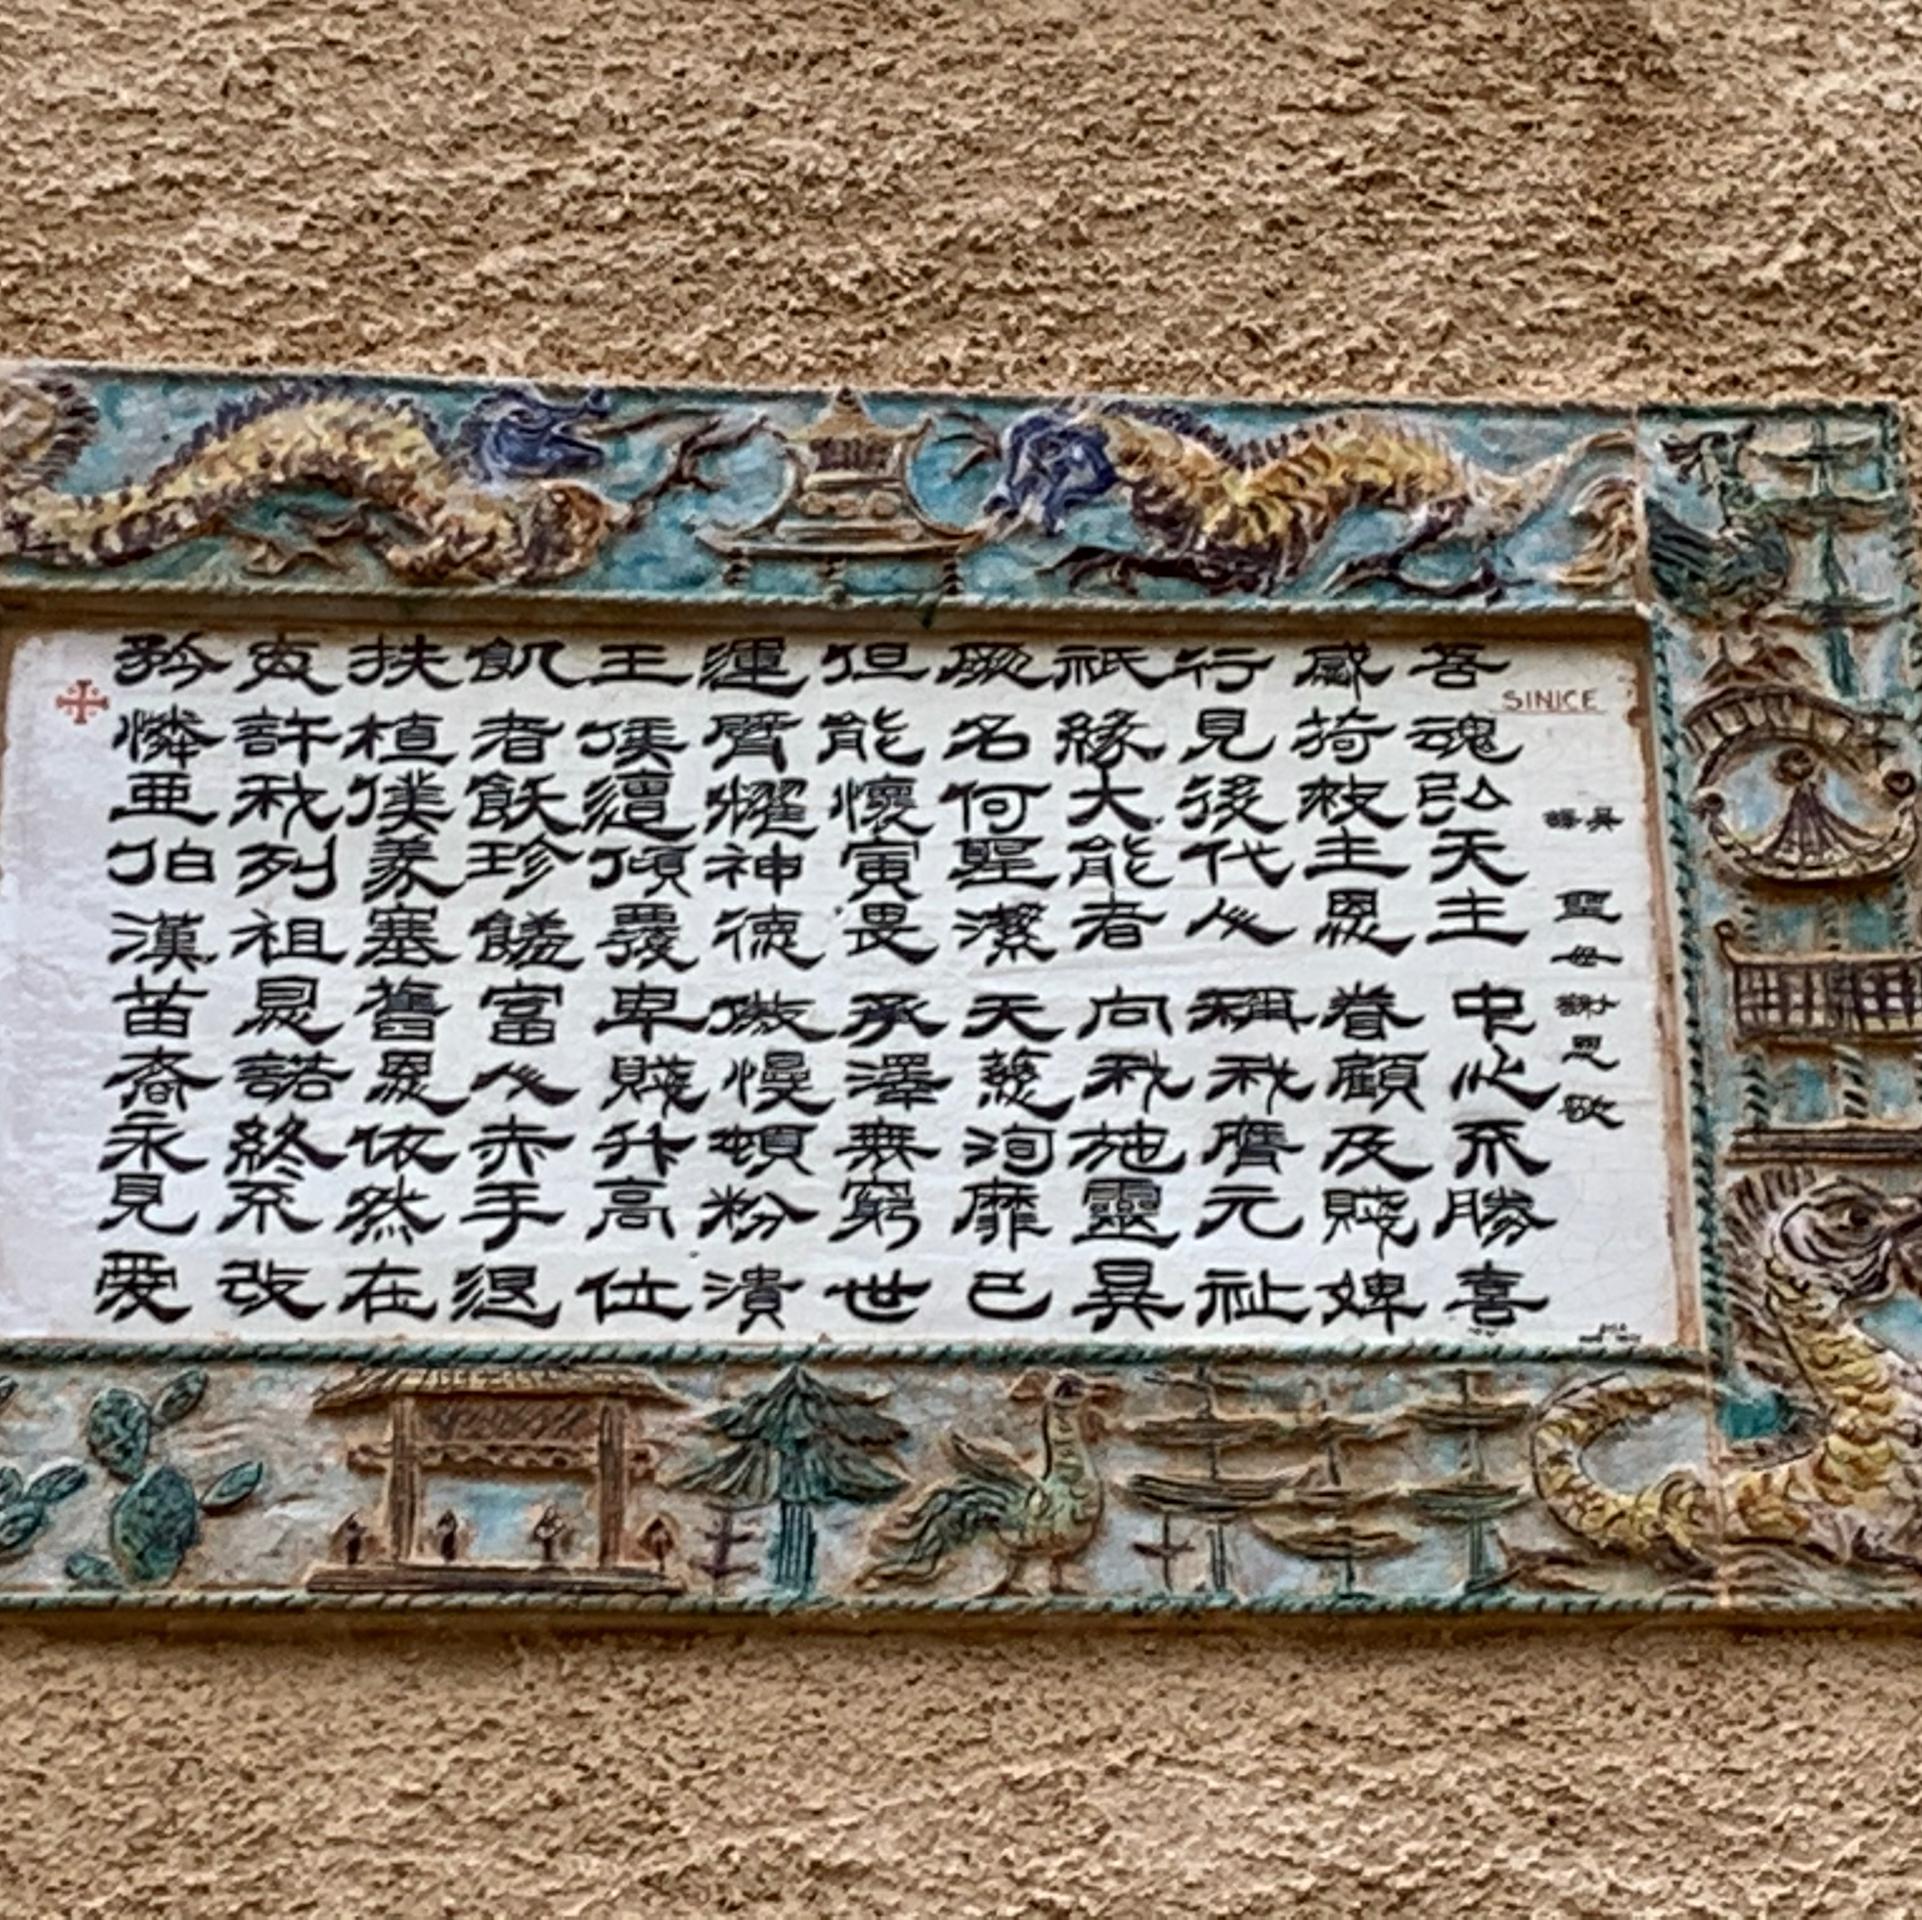 SINICE
聖母謝恩歌
吳譯
吾魂弘天主中心不勝喜
感掎救主恩眷顧及賤婢
行見後代人稱我膺元祉
祇緣大能者向我施靈異
厥名何聖潔天慈洵靡已
但能懷寅畏承澤無窮世
運臂耀神德傲慢頓粉潰
王侯遭傾覆卑賤升高位
飢者飫珍饈富人赤手退
扶植僕義塞舊恩依然在
夙許我列祖恩諾終不改
矜憐亞伯漢苗裔永見愛